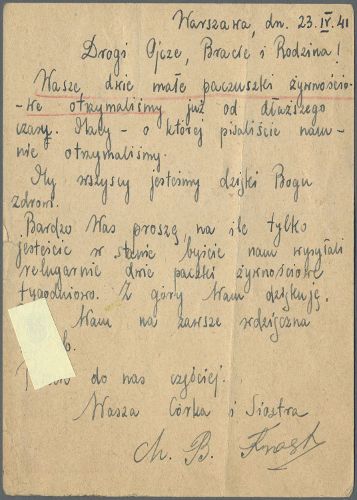 Warszawa, dn. 23.IV.41
Drogi Ojcze, Bracie i Rodzina!
Wasze, dwie małe paczuszki żywnościo-
-we otrzymaliśmy już od dłuższego
czasu. Mady - o której pisaliście nam -
nie otrzymaliśmy.
My wszyscy jesteśmy dzięki Bogu
zdrowi.
Bardzo Was proszę, na ile tylko
jesteście w stanie byście nam wysyłali
regularnie dwie paczki żywnościowe
tygodniowo. Z góry Wam dziękuję.
Wam na zawsze wdzięczna
b.
do nas częściej.
Wasza Córka i Siostra
M. B. Knast